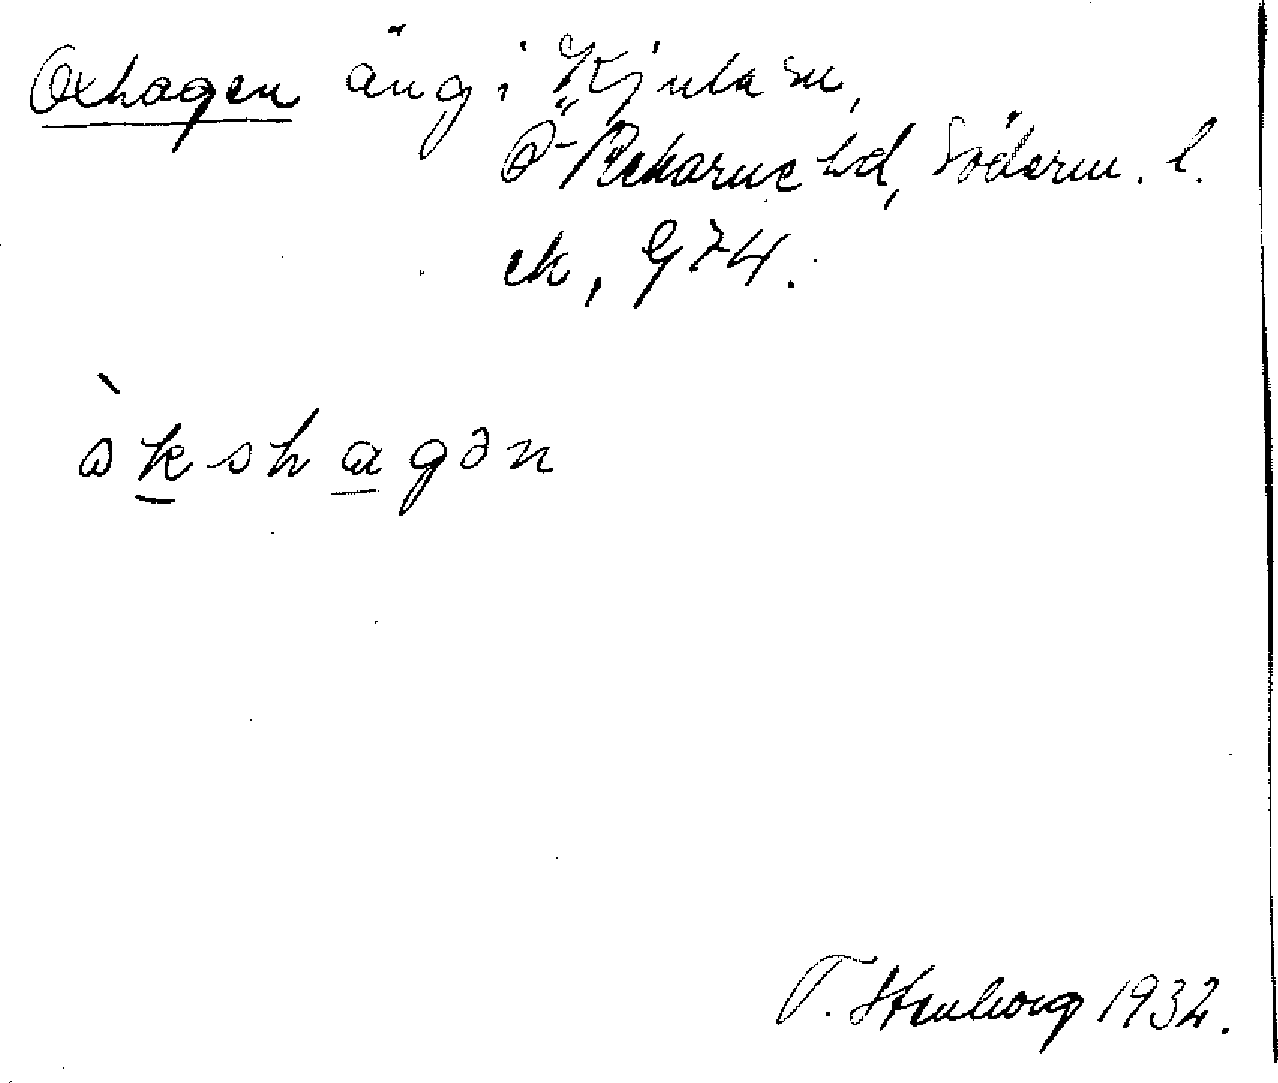 Oxhagen äng i Kjula sn,
Ö-Rekarne hd, Söderm. l.
ek, 974.
òkshagən
T. Stenborg 1932.